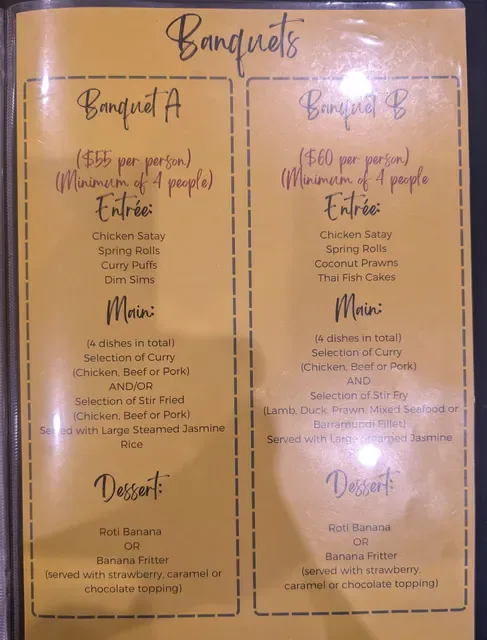 Banquets
Banquet A
($55 per person)
(Minimum of 4 people)
Entrée:
Chicken Satay
Spring Rolls
Curry Puffs
Dim Sims
Main:
(4 dishes in total)
Selection of Curry
(Chicken, Beef or Pork)
AND/OR
Selection of Stir Fried
(Chicken, Beef or Pork)
Served with Large Steamed Jasmine
Rice
Dessert:
Roti Banana
OR
Banana Fritter
(served with strawberry, caramel or
chocolate topping)
Banquet B
($60 per person)
(Minimum of 4 people
Entrée:
Chicken Satay
Spring Rolls
Coconut Prawns
Thai Fish Cakes
Main:
(4 dishes in total)
Selection of Curry
(Chicken, Beef or Pork)
AND
Selection of Stir Fry
(Lamb, Duck, Prawn, Mixed Seafood or
Barramundi Fillet)
Served with Large Steamed Jasmine
Dessert:
Roti Banana
OR
Banana Fritter
(served with strawberry,
caramel or chocolate topping)